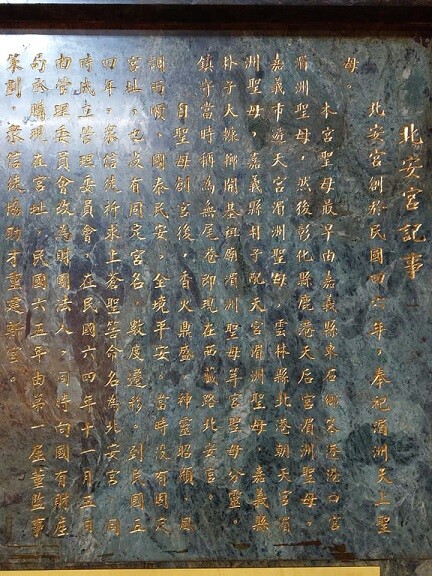 北安宮記事
北安宮創於民國四六年，奉祀湄洲天上聖
母。
本宮聖母最早由嘉義縣東石鄉笨港港口宮
湄洲聖母，然後彰化縣鹿港天后宮湄洲聖母，
嘉義市遊天宮湄洲聖母，雲林縣北港朝天宮湄
洲聖母，嘉義縣朴子配天宮湄洲聖母，嘉義縣
朴子大榔開基祖廟湄洲聖母等宮聖母分靈。
鎮守當時稱為無尾巷即現在西藏路北安宮。
自聖母創宮後，香火鼎盛，神靈昭顯，風
調雨順，國泰民安，全境平安。當時沒有固定
宮址，也沒有固定宮名，數度遷移。到民國五
四年，眾信徒祈求上蒼聖筶命名為北安宮，同
時成立管理委員會，在民國六四年十一月五日
由管理委員會改為財團法人，同時向國有財產
局承購現在宮址，民國六五年由第一屆董監事
策劃，眾信徒協助才重建新宮。